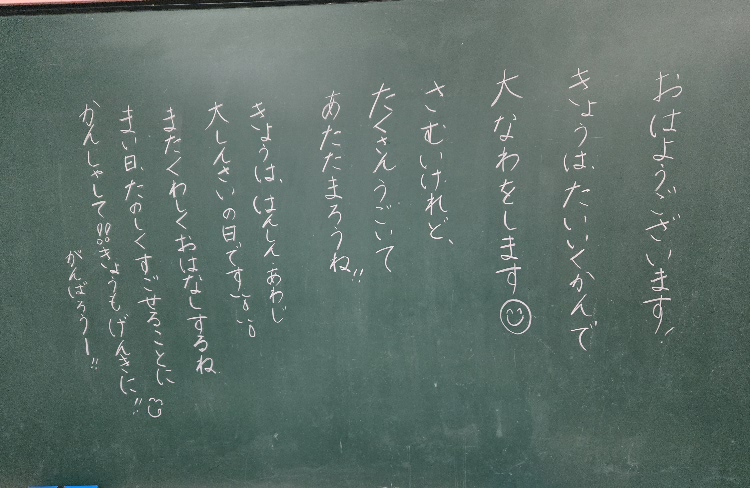 おはようございます!
きょうは、たいいくかんで
大なわをします
さむいけれど、
たくさんうごいて
あたたまろうね!!
きょうは、はんしん・あわじ
大しんさいの日です。
またくわしくおはなしするね。
まい日、たのしくすごせることに
かんしゃして!!きょうもげんきに!!
がんばろうー!!